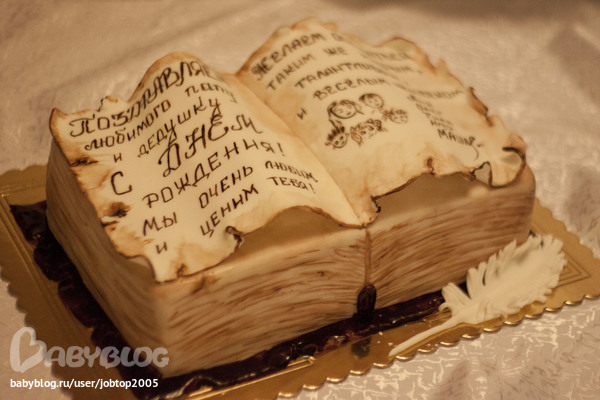 ПОЗДРАВЛЯ
любимого папу
и дедушку
С ДНЕМ
РОЖДЕНИЯ!
МЫ ОЧЕНЬ ЛЮБИМ
И ЦЕНИМ ТЕБЯ!
ЖЕЛАЕМ
ТАКИМ ЖЕ
ТАЛАНТЛИВЫМ
И ВЕСЁЛЫМ
BABYBLOG
babyblog.ru/user/jobtop2005